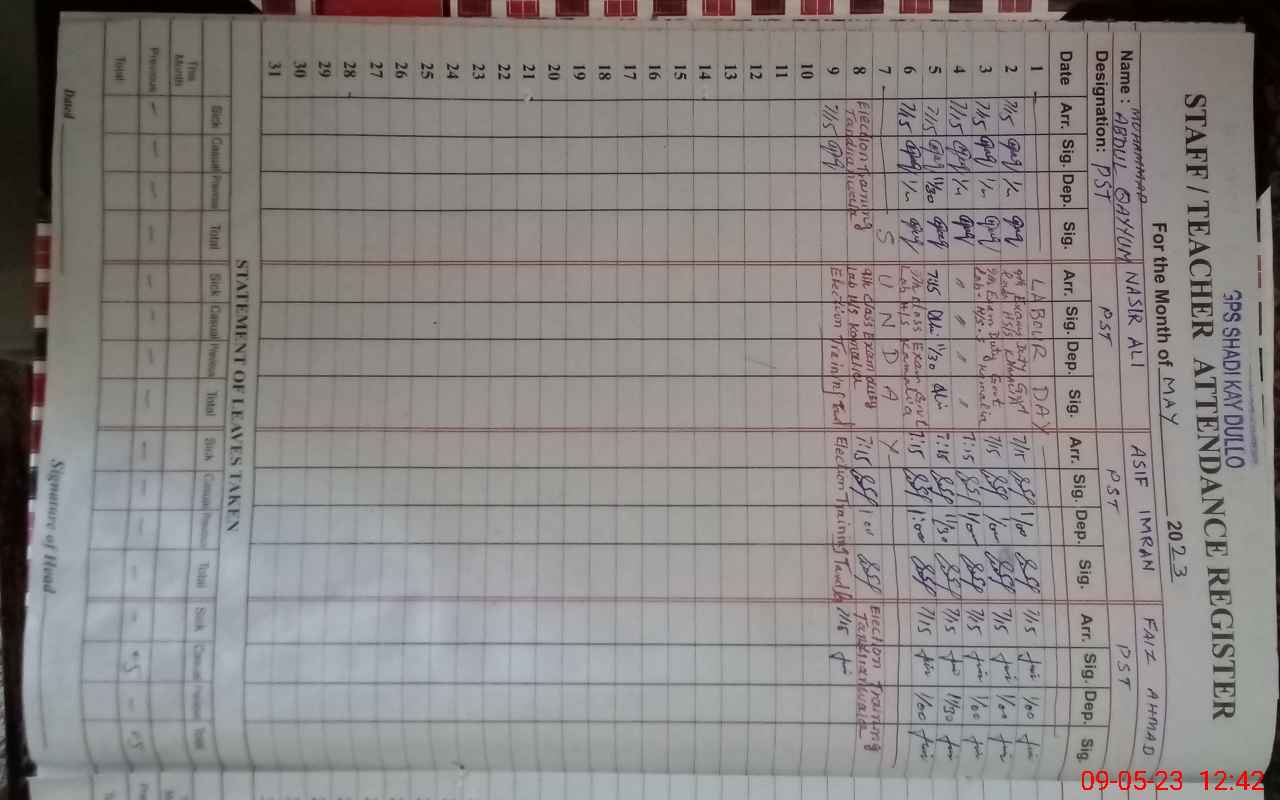 GPS SHADI KAY DULLO
STAFF / TEACHER ATTENDANCE REGISTER
For the Month of MAY 2023
Name : MUHAMMAD ABDUL QAYYUM NASIR ALI ASIF IMRAN FAIZ AHMAD
Designation: PST PST PST PST
Date Arr. Sig. Dep. Sig. Arr. Sig. Dep. Sig. Arr. Sig. Dep. Sig. Arr. Sig. Dep. Sig.
1 LABOUR DAY
2 7/15 9th Exams Duty Govt 7/15 1/00 7/15 1/00
3 7/15 9th Exam Duty Govt 7/15 1/00 7/15 1/00
4 7/15 " " " " 7:15 1/00 7/15 1/00
5 7/15 11/30 7:45 11/30 7:15 11/30 7/15 11/30
6 7/15 9th class Exam Govt Lab H/S Kamalia 7:15 1:00 7/15 1/00
7 SUNDAY
8 Election Training Tandlianwala 9th class Exam duty Lab H/S Kamalia 7:15 1:00 Election Training Tandlianwala
9 7/15 Election Training Election Training 7/15
10
11
12
13
14
15
16
17
18
19
20
21
22
23
24
25
26
27
28
29
30
31
STATEMENT OF LEAVES TAKEN
Sick Casual Previous Total Sick Casual Previous Total Sick Casual Previous Total Sick Casual Previous Total
This Month
Previous - - - - - - - - - - - - -
Total
Dated
Signature of Head
09-05-23 12:42